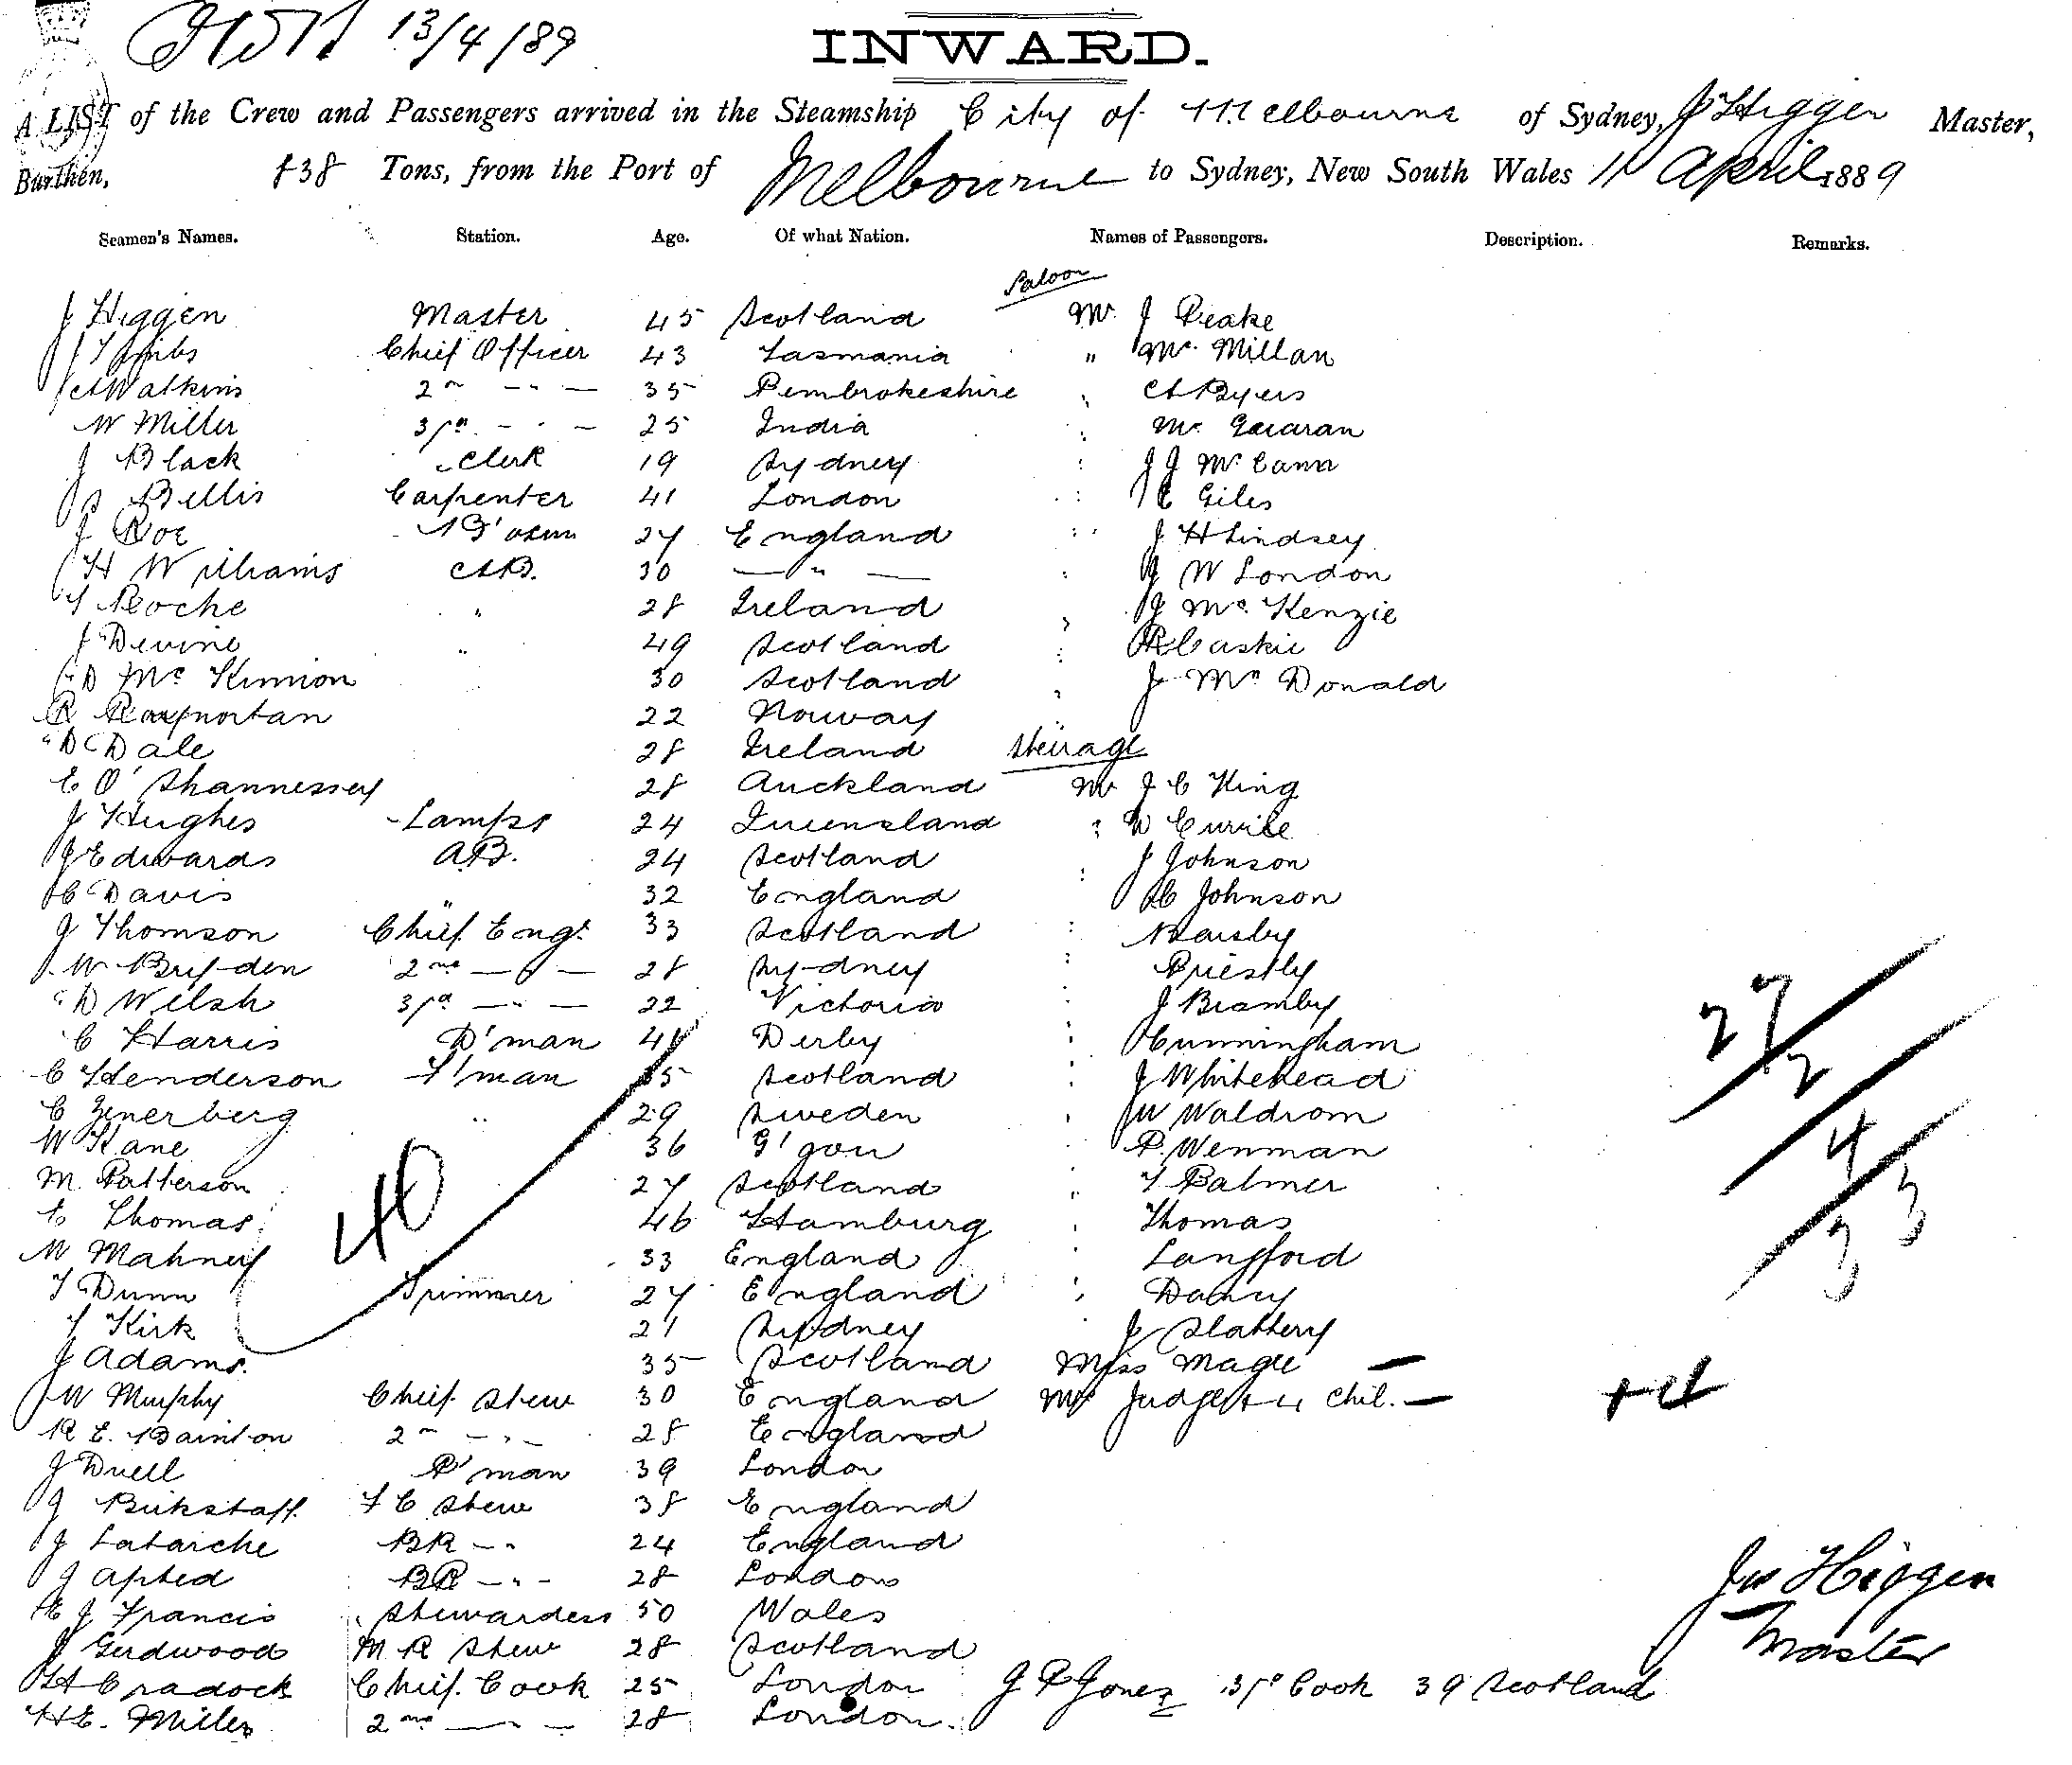 13/4/89
INWARD.
A LIST of the Crew and Passengers arrived in the Steamship City of Melbourne of Sydney, J Higgen Master,
Burthen, 838 Tons, from the Port of Melbourne to Sydney, New South Wales 11 April 1889
Seamen's Names. Station. Age. Of what Nation. Names of Passengers. Description. Remarks.
Saloon
J Higgen Master 45 Scotland Mr. J Peake
Chief Officer 43 Tasmania " Mc Millan
A Watkins 2nd - " - 35 Pembrokeshire " A Byers
W Miller 3rd - " - 25 India "
J Black " Clerk 19 Sydney " J J McCann
Bellis Carpenter 41 London " E Giles
J Roe B'osun 27 England " J H Lindsey
H Williams A.B. 30 — " — " J W London
T Roche " 28 Ireland " J Mc Kenzie
J Devine " 49 Scotland " R Caskie
D Mc Kinnon 30 Scotland " J Mc Donald
R 22 Norway
D Dale 28 Ireland Steirage
E O'Shannessey 28 Auckland Mr J C King
J Hughes Lamps 24 Queensland " W Currie
J Edwards A.B. 24 Scotland " J Johnson
C Davis " 32 England C Johnson
J Thomson Chief Engr. 33 Scotland "
W Bryden 2nd — " — 28 Sydney " Priestly
D Welsh 3rd — " — 22 Victoria " J Bramby
C Harris D'man 41 Derby " Cunningham
C Henderson F'man 35 Scotland " J Whitehead
C Zenerberg " 29 Sweden " W Waldrom
W Kane 36 G'gow " P. Wenman
M. Patterson 27 Scotland " T Palmer
E Thomas 46 Hamburg " Thomas
M Mahney 33 England " Langford
T Dunn Trimmer 27 England " Dancy
T Kirk 21 Sydney J Slattery
J Adams. 35 Scotland Miss Magee —
W Murphy Chief Stew 30 England Mrs Judge + 4 Chil. — + 4
R E. Bainton 2nd - " - 28 England
J Duell P'man 39 London
J Birkstaff F C Stew 38 England
J Labarche BR - " 24 England
J Apted BR - " - 28 London
E J Francis Stewardess 50 Wales
J Gerdwood M R Stew 28 Scotland
H Cradock Chief Cook 25 London J P Jones 3rd Cook 39 Scotland
H E. Miles 2nd — " — 28 London.
40
27
2
4
33
Jas Higgen
Master